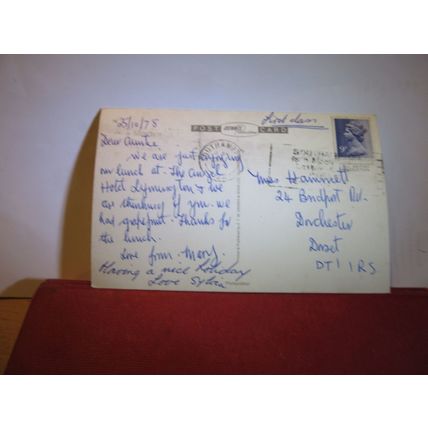 25/10/78
First class
POST CARD
Dear Auntie,
We are just enjoying
our lunch at The Angel
Hotel Lymington & we
are thinking of you. We
had grapefruit. Thanks for
the lunch.
Love from Mary.
Having a nice holiday
Love Sylvia
Mrs Hammett
24 Bridport Rd.
Dorchester
Dorset
DT1 1RS